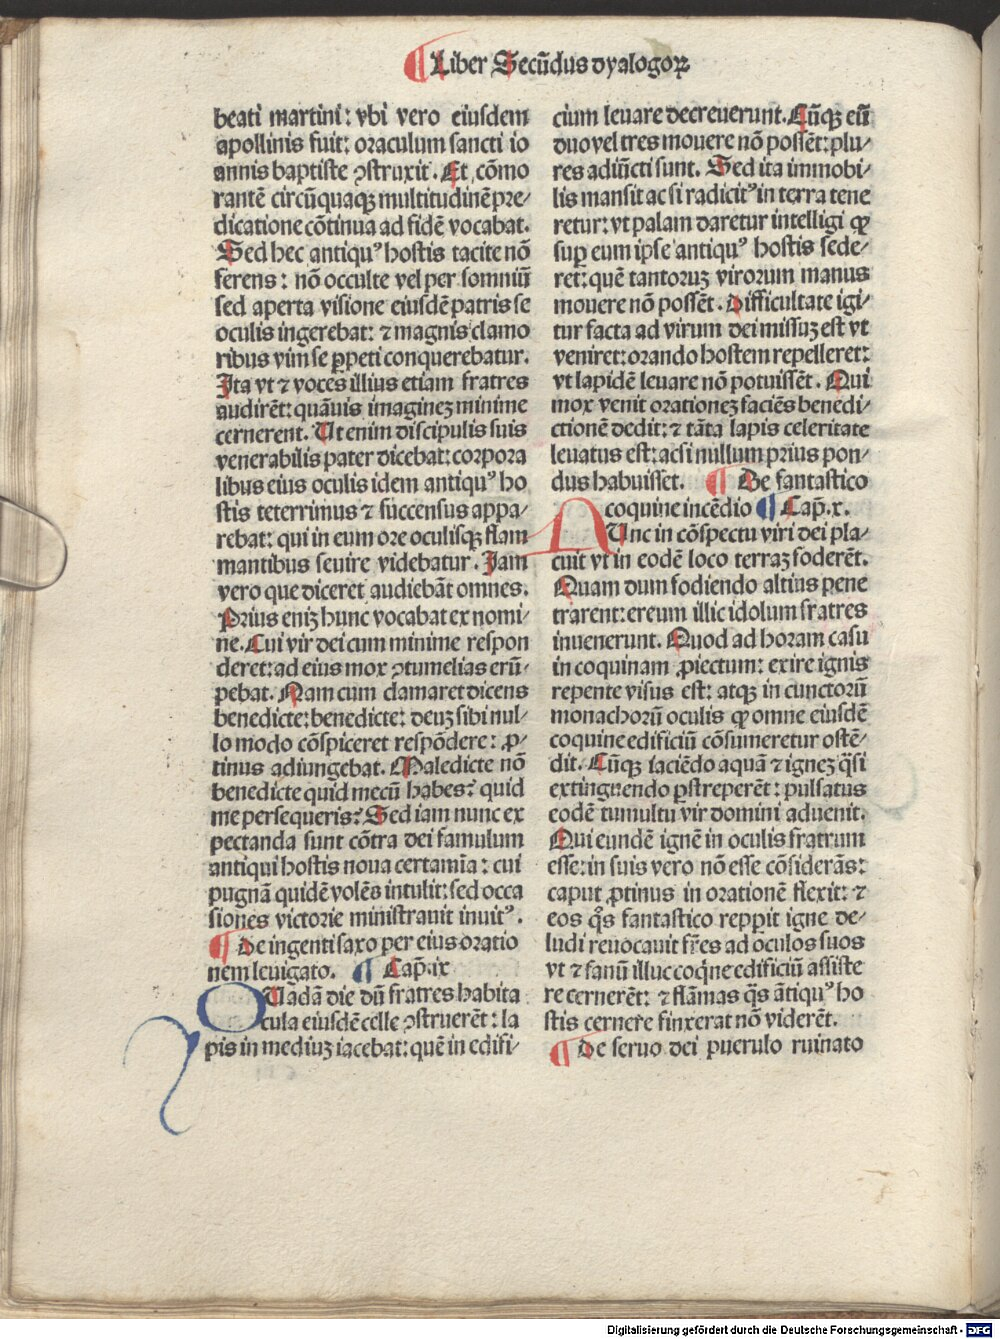 ¶Liber Secūdus dyalogoꝝ
beati martini: vbi vero eiusdem
apollinis fuit: oraculum sancti io
annis baptiste ꝯstruxit. Et cōmo
rantē circūquaqꝫ multitudinē pre⸗
dicatione cōtinua ad fidē vocabat.
Sed hec antiquꝰ hostis tacite nō
ferens: nō occulte vel per somniū
sed aperta visione eiusdē patris se
oculis ingerebat: ⁊ magnis clamo
ribus vim se ꝑpeti conquerebatur.
Ita vt ⁊ voces illius etiam fratres
audirēt: quāuis imagineꝫ minime
cernerent. Ut enim discipulis suis
venerabilis pater dicebat: corpora
libus eius oculis idem antiquꝰ ho
stis teterrimus ⁊ succensus appa⸗
rebat: qui in eum ore oculisqꝫ flam
mantibus seuire videbatur. Jam
vero que diceret audiebāt omnes.
Prius eniꝫ hunc vocabat ex nomi⸗
ne. Cui vir dei cum minime respon
deret: ad eius mox ꝯtumelias erū⸗
pebat. Nam cum clamaret dicens
benedicte: benedicte: deuꝫ sibi nul⸗
lo modo cōspiceret respōdere: ꝓ⸗
tinus adiungebat. Maledicte nō
benedicte quid mecū habes? quid
me persequeris? Sed iam nunc ex
pectanda sunt cōtra dei famulum
antiqui hostis noua certamīa: cui
pugnā quidē volēs intulit: sed occa
siones victorie ministrauit inuitꝰ.
¶ De ingenti saxo per eius oratio
nem leuigato. ¶ Cap̄.ix
QUadā die dū fratres habita
cula eiusdē celle ꝯstruerēt: la
pis in mediuꝫ iacebat: quē in edifi⸗
cium leuare decreuerunt. Cūqꝫ eū
duo vel tres mouere nō possēt: plu⸗
res adiūcti sunt. Sed ita immobi⸗
lis mansit ac si radicitꝰ in terra tene
retur: vt palam daretur intelligi ꝙ
suꝑ eum ipse antiquꝰ hostis sede⸗
ret: quē tantoruꝫ virorum manus
mouere nō possēt. Difficultate igi⸗
tur facta ad virum dei missuꝫ est vt
veniret: orando hostem repelleret:
vt lapidē leuare nō potuissēt. Qui
mox venit orationeꝫ faciēs benedi⸗
ctionē dedit: ⁊ tāta lapis celeritate
leuatus est: acsi nullum prius pon⸗
dus habuisset. ¶ De fantastico
coquine incēdio ¶ Cap̄.x.
AUnc in cōspectu viri dei pla⸗
cuit vt in eodē loco terraꝫ foderēt.
Quam dum fodiendo altius pene
trarent: ereum illic idolum fratres
inuenerunt. Quod ad horam casu
in coquinam ꝓiectum: exire ignis
repente visus est: atqꝫ in cunctorū
monachorū oculis ꝙ omne eiusdē
coquine edificiū cōsumeretur ostē⸗
dit. Cūqꝫ iaciēdo aquā ⁊ igneꝫ q̄si
extinguendo ꝑstreperēt: pulsatus
eodē tumultu vir domini aduenit.
Qui eundē ignē in oculis fratrum
esse: in suis vero nō esse cōsiderās:
caput ꝓtinus in orationē flexit: ⁊
eos q̄s fantastico repꝑit igne de⸗
ludi reuocauit fr̄es ad oculos suos
vt ⁊ sanū illuc coq̄ne edificiū assiste
re cernerēt: ⁊ flāmas q̄s ātiquꝰ ho
stis cernere finxerat nō viderēt.
¶ De seruo dei puerulo ruinato
Digitalisierung gefördert durch die Deutsche Forschungsgemeinschaft - DFG